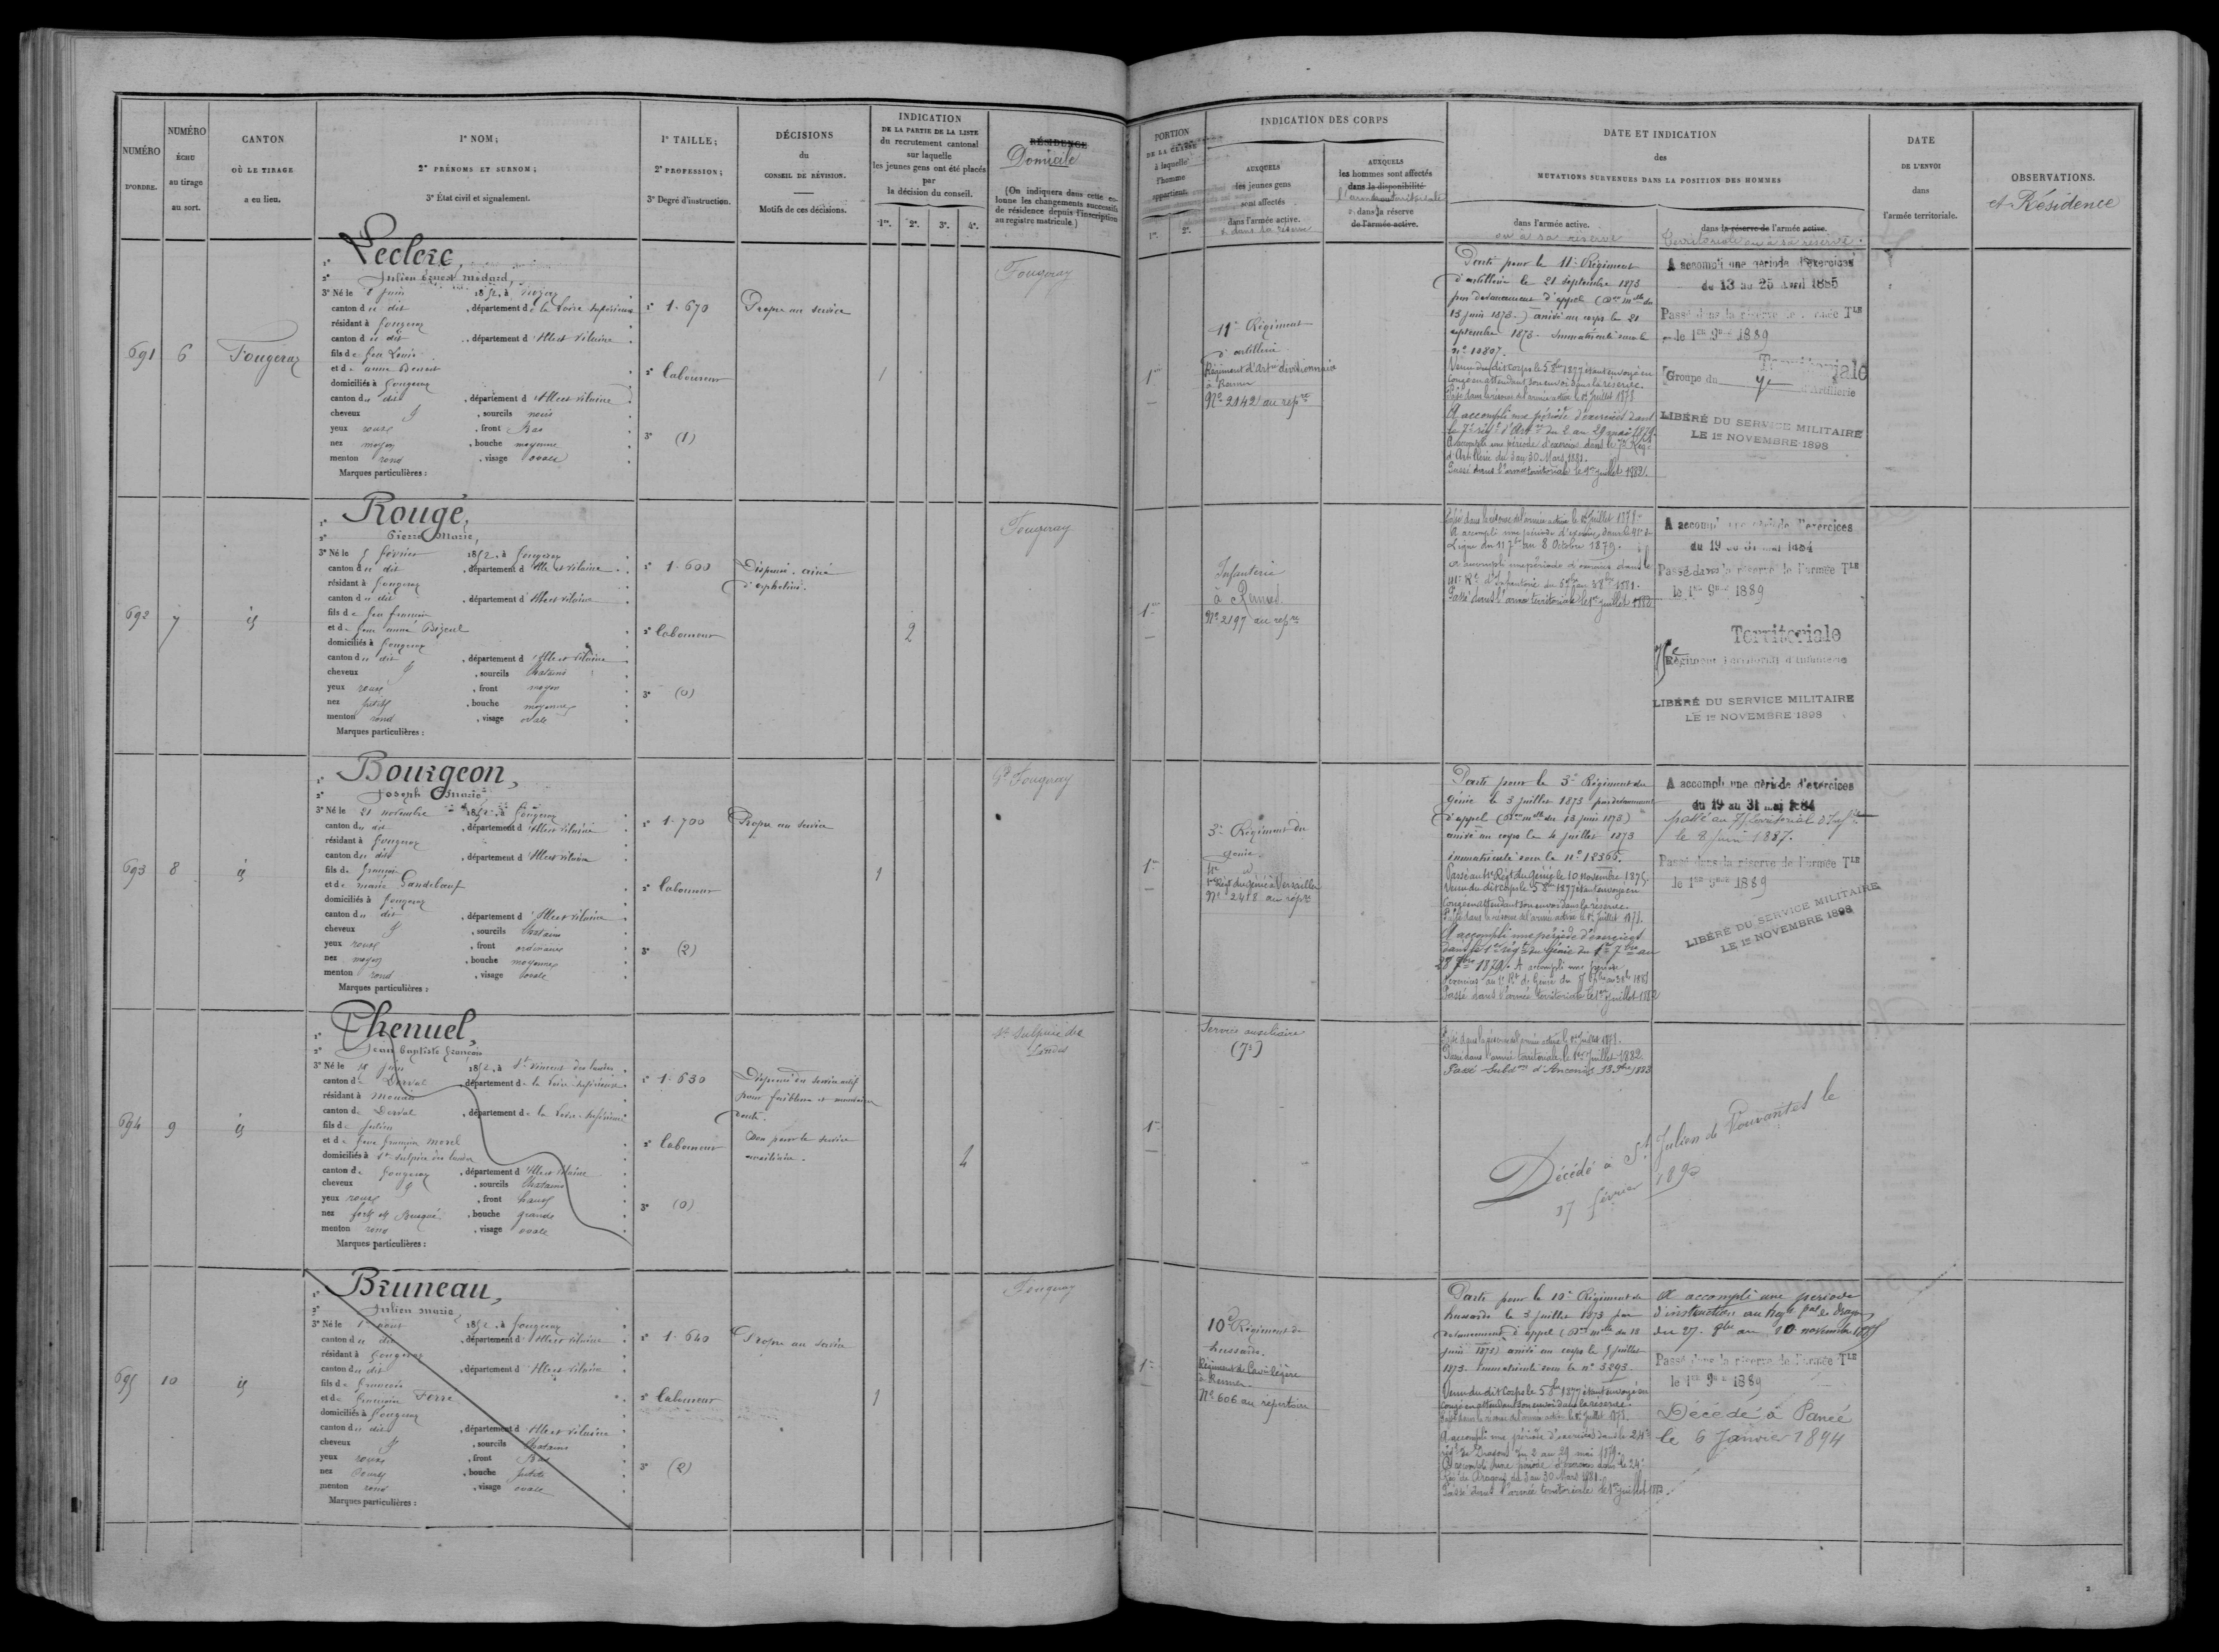 NUMÉRO
D'ORDRE.
NUMÉRO
ÉCHU
au tirage
au sort.
CANTON
OÙ LE TIRAGE
a eu lieu.
1° NOM;
2° PRÉNOMS ET SURNOM;
3° État civil et signalement.
1° TAILLE;
2° PROFESSION;
3° Degré d'instruction.
DÉCISIONS
du
CONSEIL DE RÉVISION.
Motifs de ces décisions.
INDICATION
DE LA PARTIE DE LA LISTE
du recrutement cantonal
sur laquelle
les jeunes gens ont été placés
par
la décision du conseil.
1re. 2e. 3e. 4e.
RÉSIDENCE
Domicile
(On indiquera dans cette co-
lonne les changements successifs
de résidence depuis l'inscription
au registre matricule.)
PORTION
DE LA CLASSE
à laquelle
l'homme
appartient.
1re. 2e.
INDICATION DES CORPS
AUXQUELS
les jeunes gens
sont affectés
dans l'armée active.
& dans sa réserve
AUXQUELS
les hommes sont affectés
dans la disponibilité
dans la réserve
de l'armée active.
DATE ET INDICATION
des
MUTATIONS SURVENUES DANS LA POSITION DES HOMMES
dans l'armée active.
ou à sa réserve
dans la réserve de l'armée active.
territoriale ou à sa réserve.
DATE
DE L'ENVOI
dans
l'armée territoriale.
OBSERVATIONS.
et Résidence
691 6 Fougeray
Leclerc,
Julien Ernest Médard,
3° Né le juin 1852, à
canton du dit, département de la Loire Inférieure
résidant à fougeray
canton du dit, département d'Ille et Vilaine
fils de feu Louis
et de anne
domiciliés à fougeray
canton du dit, département d'Ille et Vilaine
cheveux, sourcils noirs
yeux roux, front Bas
nez moyen, bouche moyenne
menton rond, visage ovale
Marques particulières :
1° 1.670
2° Laboureur
3° (1)
Propre au service
1
Fougeray
1re
11e Régiment
d'artillerie
Régiment d'Artie divisionnaire
à Rennes
No 2142 au repre
Parti pour le 11e Régiment
d'artillerie le 21 septembre 1873
par devancement d'appel
13 juin 1873.) arrivé au corps le 21
septembre 1873. Immatriculé sous le
no 10807.
Venu du dit corps le 5 8bre 1877 étant envoyé en
congé en attendant son envoi dans la réserve.
Passé dans la réserve de l'armée active le 1er Juillet 1878
A accompli une période d'exercices dans
le 7e régt d'Artie du 2 au 29 mai 1879.
A accompli une période d'exercices dans le 7e Régt
d'Artillerie du 3 au 30 Mars 1881.
Passé dans l'armée territoriale le 1er juillet 1882.
A accompli une période d'exercices
du 13 au 25 avril 1885
Passé dans la réserve de l'armée Tle
le 1er 9bre 1889
Territoriale
Groupe du d'Artillerie
LIBÉRÉ DU SERVICE MILITAIRE
LE 1er NOVEMBRE 1898
692 7 id
Rougé,
Pierre Marie,
3° Né le 5 février 1852, à fougeray
canton du dit, département d'Ille et Vilaine
résidant à fougeray
canton du dit, département d'Ille et Vilaine
fils de feu françois
et de feue anne Bizeul
domiciliés à fougeray
canton du dit, département d'Ille et Vilaine
cheveux, sourcils chatains
yeux roux, front moyen
nez petit, bouche moyenne
menton rond, visage ovale
Marques particulières :
1° 1.600
2° Laboureur
3° (0)
Dispensé. aîné
d'orphelins.
2
Fougeray
1re
Infanterie
à Rennes.
No 2197 au repre
Passé dans la réserve de l'armée active le 1er Juillet 1878
A accompli une période d'exercices dans le 41e de
Ligne du 11 7bre au 8 Octobre 1879.
A accompli une période d'exercices dans le
Passé dans l'armée territoriale le 1er juillet 1882
A accompli une période d'exercices
du 19 au 31 mai 1884
Passé dans la réserve de l'armée Tle
le 1er 9bre 1889
Territoriale
75e Régiment Territorial d'Infanterie
LIBÉRÉ DU SERVICE MILITAIRE
LE 1er NOVEMBRE 1898
693 8 id
Bourgeon,
Joseph Marie
3° Né le 21 novembre 1852, à fougeray
canton du dit, département d'Ille et Vilaine
résidant à fougeray
canton du dit, département d'Ille et Vilaine
fils de françois
et de marie Gandebœuf
domiciliés à fougeray
canton du dit, département d'Ille et Vilaine
cheveux, sourcils chatains
yeux roux, front ordinaire
nez moyen, bouche moyenne
menton rond, visage ovale
Marques particulières :
1° 1.700
2° Laboureur
3° (2)
Propre au service
1
Gd Fougeray
1re
3e Régiment du
génie.
Régt du génie à Versailles
No 2418 au repre
Parti pour le 3e Régiment du
génie le 3 juillet 1873 par devancement
d'appel
arrivé au corps le 4 juillet 1873
immatriculé sous le no 12366.
Passé au 1er Régt du Génie le 10 novembre 1875
Venu du dit corps le 5 8bre 1877 étant envoyé en
congé en attendant son envoi dans la réserve.
Passé dans la réserve de l'armée active le 1er Juillet 1878.
A accompli une période d'exercices
dans le 1er régt du Génie du 1er 7bre au
28 7bre 1879. A accompli une période
Passé dans l'armée territoriale le 1er juillet 1882
A accompli une période d'exercices
du 19 au 31 mai 1884
passé au 75e territorial d'Infie
le 8 juin 1887.
Passé dans la réserve de l'armée Tle
le 1er 9bre 1889
LIBÉRÉ DU SERVICE MILITAIRE
LE 1er NOVEMBRE 1898
694 9 id
Thenuel,
Jean Baptiste françois
3° Né le juin 1852, à St Vincent des landes
canton de Derval, département de la Loire Inférieure
résidant à Mouais
canton de Derval, département de la Loire Inférieure
fils de Julien
et de feue françoise morel
domiciliés à St Sulpice des landes
canton de fougeray, département d'Ille et Vilaine
cheveux, sourcils chatains
yeux roux, front haut
nez fort et Busqué, bouche grande
menton rond, visage ovale
Marques particulières :
1° 1.630
2° Laboureur
3° (0)
Dispensé du service actif
pour faiblesse et mauvaises
dents.
Bon pour le service
auxiliaire.
4
St Sulpice des
Landes
1re
Service auxiliaire
(75)
Passé dans la réserve de l'armée active le 1er Juillet 1878.
Passé dans l'armée territoriale le 1er Juillet 1882
Passé Subdon d'Ancenis 1883
Décédé à St Julien de Vouvantes le
17 février 1890
695 10 id
Bruneau,
Julien Marie,
3° Né le 1er aout 1852, à fougeray
canton du dit, département d'Ille et Vilaine
résidant à fougeray
canton du dit, département d'Ille et Vilaine
fils de françois
et de françoise Ferré
domiciliés à fougeray
canton du dit, département d'Ille et Vilaine
cheveux, sourcils chatains
yeux roux, front Bas
nez, bouche petite
menton rond, visage ovale
Marques particulières :
1° 1.640
2° Laboureur
3° (2)
Propre au service
1
Fougeray
1re
10e Régiment de
hussards.
Régiment de Cavie légère
à Rennes.
No 606 au répertoire
Parti pour le 10e Régiment de
hussards le 3 juillet 1873 par
devancement d'appel
juin 1873) arrivé au corps le 5 juillet
1873. Immatriculé sous le no 3293
Venu du dit Corps le 5 8bre 1877 étant envoyé en
congé en attendant son envoi dans la réserve.
Passé dans la réserve de l'armée active le 1er Juillet 1878.
A accompli une période d'exercices dans le 24e
régt de Dragons du 2 au 29 mai 1879.
A accompli une période d'exercices dans le 24e
Régt de Dragons du 3 au 30 Mars 1881.
Passé dans l'armée territoriale le 1er juillet 1882.
A accompli une période
d'instruction au de Dragons
du 27 8bre au 10 novembre 1885
Passé dans la réserve de l'armée Tle
le 1er 9bre 1889
Décédé à Pancé
le 6 Janvier 1894